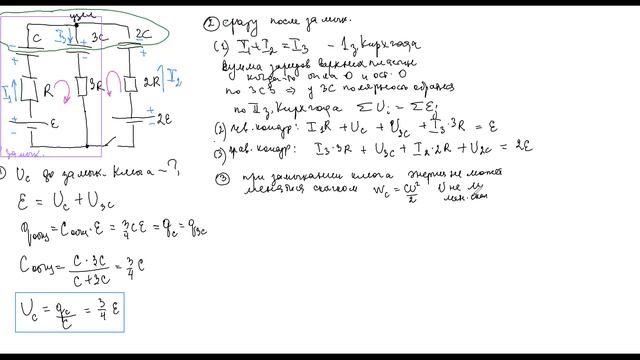 узел
C
3C
2C
I₁
I₃
I₂
R
3R
2R
ε
2ε
замык.
U_C до замык. ключа - ?
ε = U_C + U_3C
q_общ = C_общ · ε = 3/4 Cε = q_C = q_3C
C_общ = C · 3C / C + 3C = 3/4 C
U_C = q_C / C = 3/4 ε
② сразу после замык.
(1) I₁ + I₂ = I₃ - 1 з. Кирхгофа
сумма зарядов верхних пластин
когда-то была 0 и ост. 0
по ЗСЗ ⇒ у 3C полярность обратная
по II з. Кирхгофа ΣU_i = Σε_i
(2) лев. контур: I₁R + U_C + U_3C + I₃·3R = ε
(3) прав. контур: I₃·3R + U_3C + I₂·2R + U_2C = 2ε
③ при замыкании ключа энергия не может
меняться скачком W_C = CU²/2 U не м
мен.